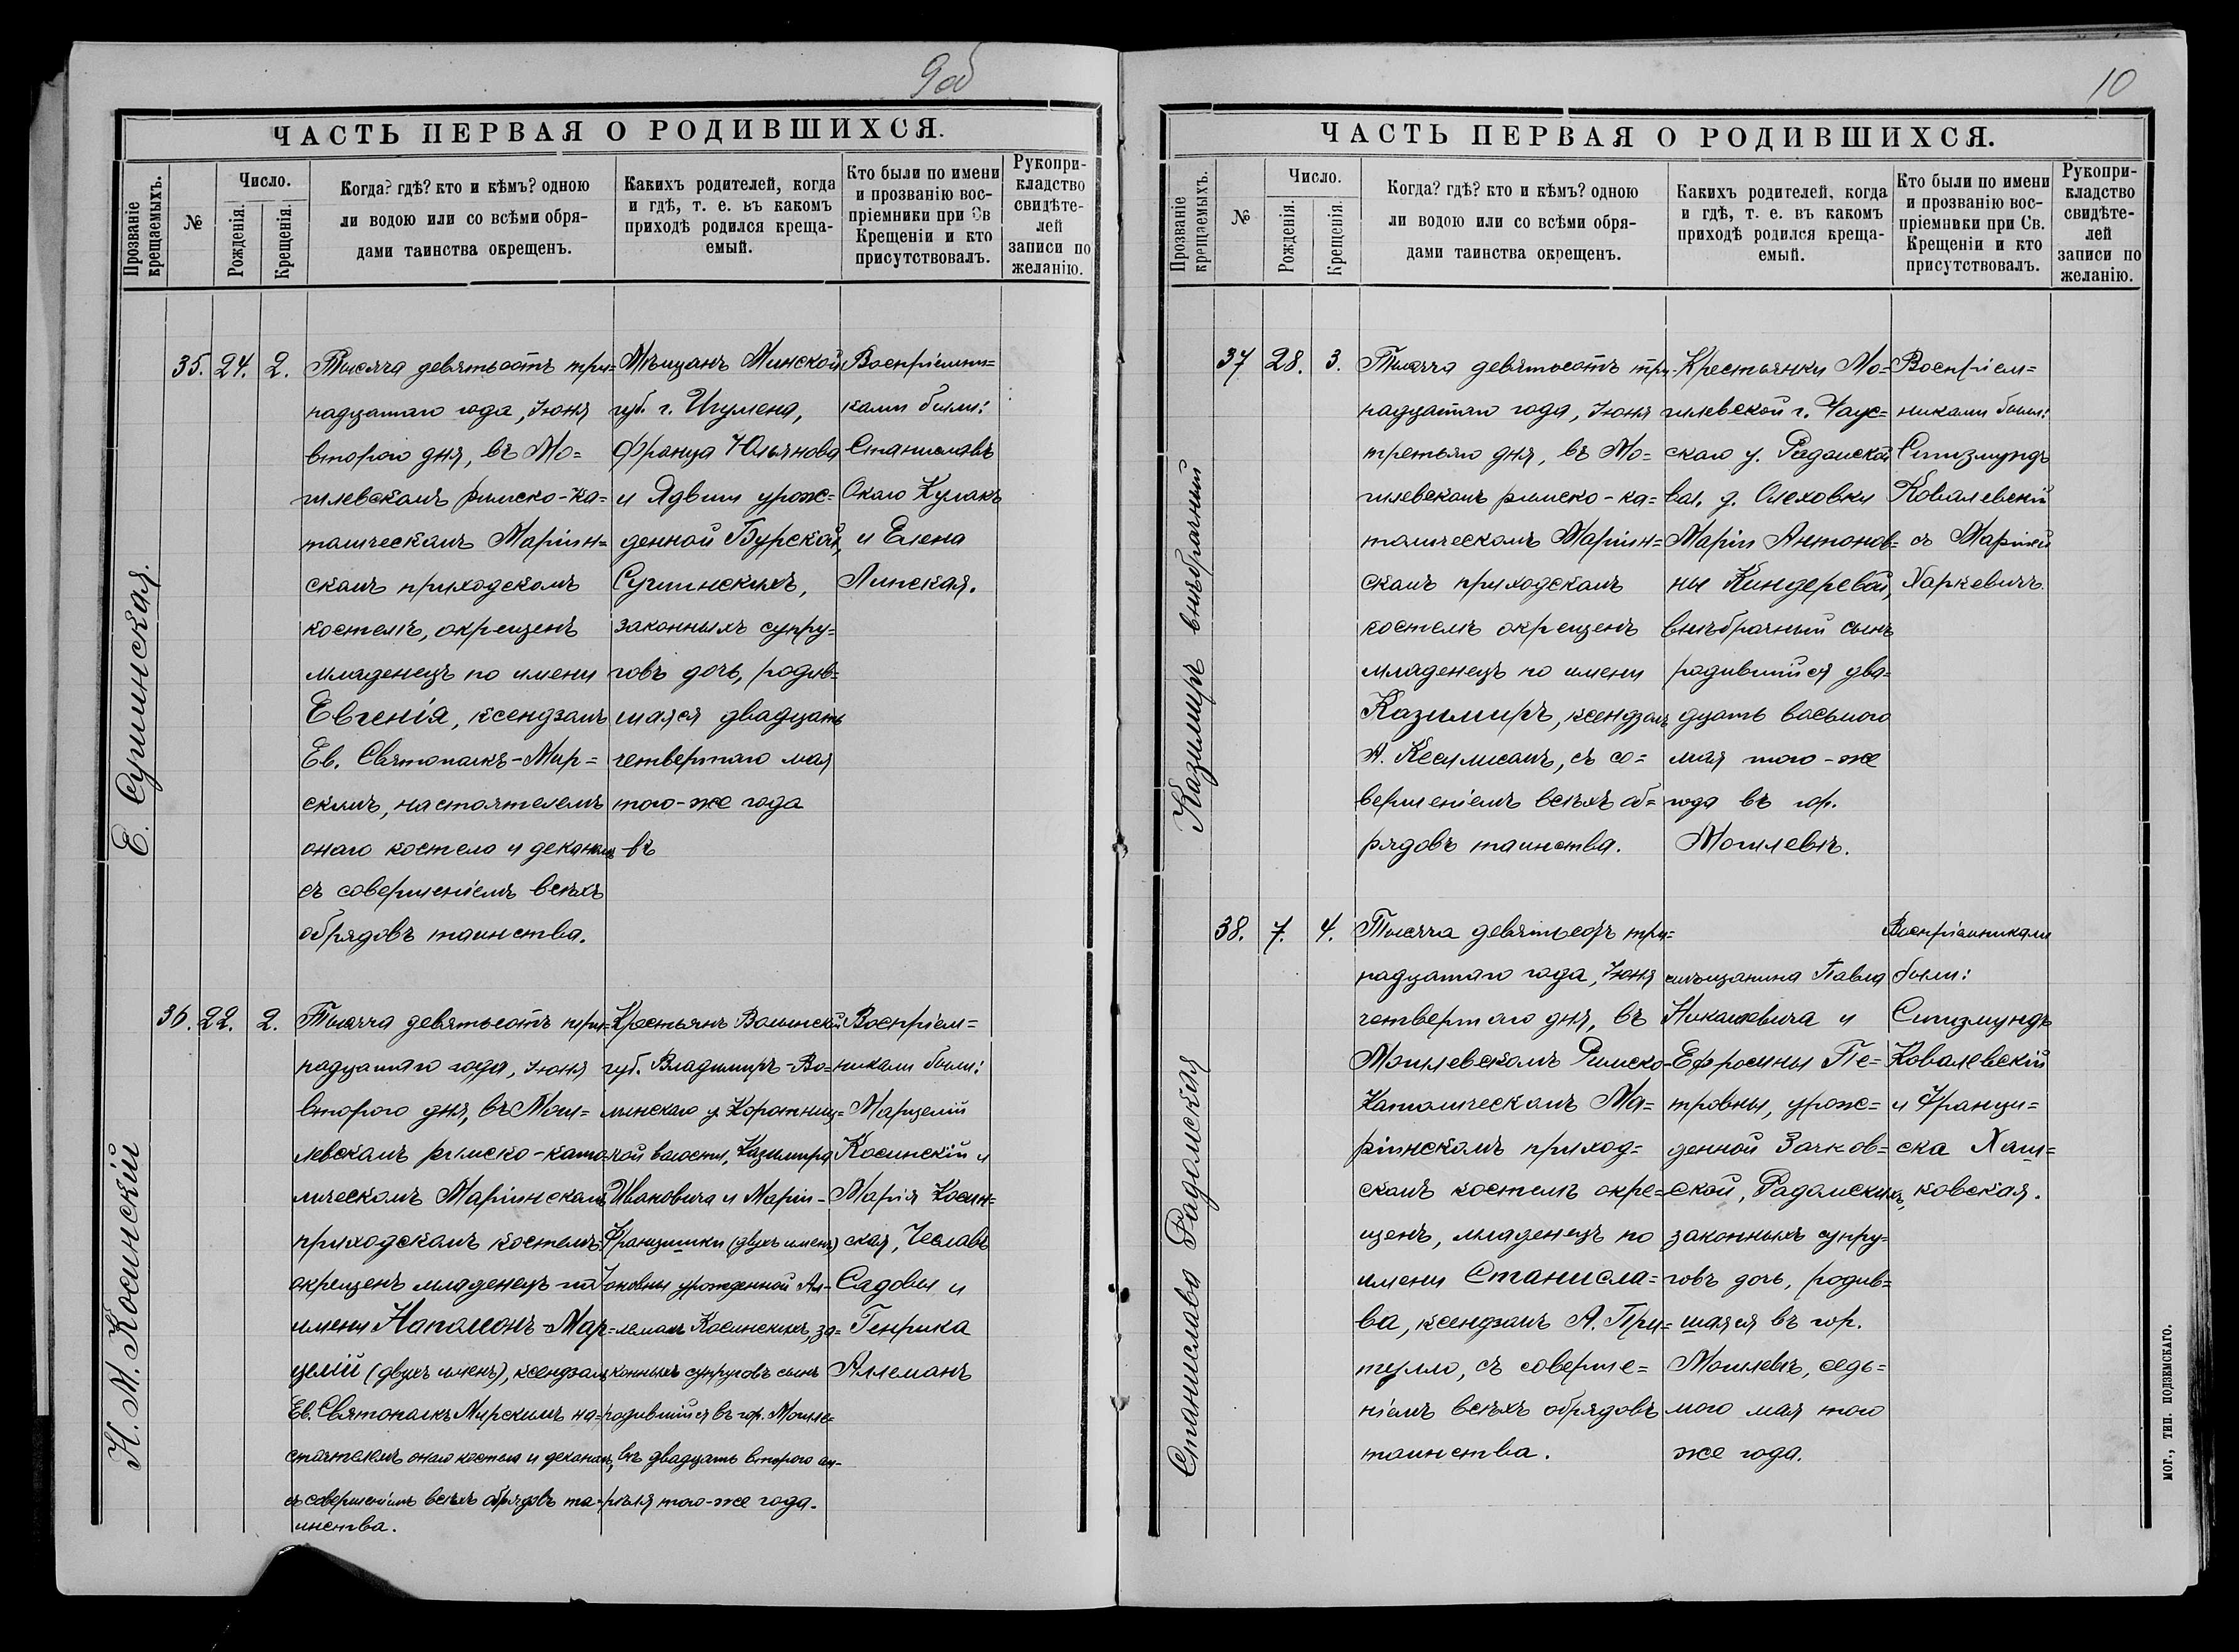 9об
ЧАСТЬ ПЕРВАЯ О РОДИВШИХСЯ.
Прозваніе крещаемыхъ.
№
Число.
Рожденія.
Крещенія.
Когда? гдѣ? кто и кѣмъ? одною
ли водою или со всѣми обря-
дами таинства окрещенъ.
Какихъ родителей, когда
и гдѣ, т. е. въ какомъ
приходѣ родился креща-
емый.
Кто были по имени
и прозванію вос-
пріемники при Св
Крещеніи и кто
присутствовалъ.
Рукопри-
кладство
свидѣте-
лей
записи по
желанію.
Е. Сушинская.
35.
24.
2.
Тысяча девятьсотъ три=
надцатаго года, Іюня
второго дня, въ Мо=
гилевскомъ римско-ка=
толическомъ Маріин=
скомъ приходскомъ
костелѣ, окрещенъ
младенецъ по имени
Евгенія, ксендзомъ
Ев. Святополкъ-Мир=
скимъ, настоятелемъ
онаго костела и деканомъ
съ совершеніемъ всѣхъ
обрядовъ таинства.
Мѣщанъ Минской
губ. г. Игумена,
Франца Юльянова
и Ядвиги урож=
денной Бурской,
Сушинскихъ,
законныхъ супру=
говъ дочь, родив=
шаяся двадцать
четвертаго мая
того-же года
въ
Воспріемни=
ками были:
Станиславъ
Окаго Кулакъ
и Елена
Липская.
Н. М. Косинскій
36.
22.
2.
Тысяча девятьсотъ три=
надцатаго года, Іюня
второго дня, въ Моги=
левскомъ римско-като=
лическомъ Маріинскомъ
приходскомъ костелѣ
окрещенъ младенецъ по
имени Наполіонъ-Мар=
целій (двухъ именъ), ксендзомъ
Ев. Святополкъ Мирскимъ на=
стоятелемъ онаго костела и деканомъ,
съ совершеніемъ всѣхъ обрядовъ та=
инства.
Крестьянъ Волынской
губ. Владимиръ-Во=
лынскаго у. Коротниц=
кой волости, Казимира
Ивановича и Маріи-
Францишки (двухъ именъ)
уроженной Ал=
леманъ Косинскихъ, за=
конныхъ супруговъ сынъ
родившійся въ гор. Могиле=
вѣ двадцать второго ап=
рѣля того-же года.
Воспріем=
никами были:
Марцелій
Косинскій и
Марія Косин=
ская, Чеславъ
Садовы и
Генрика
Аллеманъ
10
ЧАСТЬ ПЕРВАЯ О РОДИВШИХСЯ.
Прозваніе крещаемыхъ.
№
Число.
Рожденія.
Крещенія.
Когда? гдѣ? кто и кѣмъ? одною
ли водою или со всѣми обря-
дами таинства окрещенъ.
Какихъ родителей, когда
и гдѣ, т. е. въ какомъ
приходѣ родился креща-
емый.
Кто были по имени
и прозванію вос-
пріемники при Св.
Крещеніи и кто
присутствовалъ.
Рукопри-
кладство
свидѣте-
лей
записи по
желанію.
Казимиръ внѣбрачный
37
28.
3.
Тысяча девятьсотъ три-
надцатаго года, Іюня
третьяго дня, въ Мо=
гилевскомъ римско-ка=
толическомъ Маріин=
скомъ приходскомъ
костелѣ окрещенъ
младенецъ по имени
Казимиръ, ксендзомъ
А. Кесмисомъ, съ со=
вершеніемъ всѣхъ об=
рядовъ таинства.
Крестьянки Мо=
гилевской г. Чаус=
скаго у. Радомской
вол. д. Олеховки
Маріи Антонов=
ны Киндеревой,
внѣбрачный сынъ
родившійся два=
дцать восьмого
мая того-же
года въ гор.
Могилевѣ.
Воспріем=
никами были:
Сигизмундъ
Ковалевскій
съ Маріей
Харкевичъ.
Станислава Радомская
38.
7.
4.
Тысяча девятьсотъ три=
надцатаго года, Іюня
четвертаго дня, въ
Могилевскомъ Римско-
Католическомъ Ма=
ріинскомъ приход=
скомъ костелѣ окре=
щенъ, младенецъ по
имени Станисла=
ва, ксендзомъ А. При=
тулло, съ соверше=
ніемъ всѣхъ обрядовъ
таинства.
мѣщанина Павла
и
Ефросины Пе=
тровны, урож=
денной Зачков=
ской, Радомскихъ,
законныхъ супру=
говъ дочь, родив=
шаяся въ гор.
Могилевѣ, седь=
мого мая того
же года.
Воспріемниками
были:
Сигизмундъ
Ковалевскій
и Франци=
ска Хаш=
ковская.
МОГ., ТИП. ПОДЗЕМСКАГО.